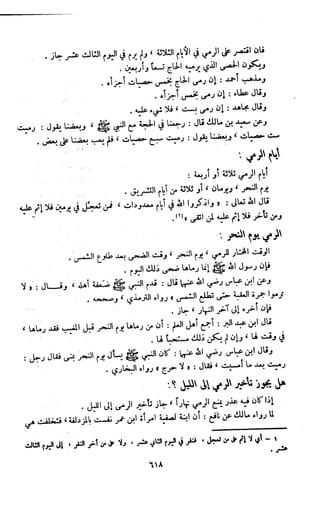 فان اقتصر على الرمي في الأيام الثلاثة ، ولم يرم في اليوم الثالث عشر جاز .
ويكون الحصى الذي يرميه الحاج تسعاً وأربعين .
ومذهب أحمد : إن رمى الحاج بخمس حصيات أجزأه .
وقال عطاء : إن رمى بخمس أجزأه .
وقال مجاهد : إن رمى بست ، فلا شيء عليه .
وعن سعيد بن مالك قال : رجعنا في الحجة مع النبي ﷺ ، وبعضنا يقول : رميت
ست حصيات ، وبعضنا يقول : رميت سبع حصيات ، فلم يعب بعضنا على بعض .
أيام الرمي :
أيام الرمي ثلاثة أو أربعة :
يوم النحر ، ويومان ، أو ثلاثة من أيام التشريق .
قال الله تعالى : « واذكروا الله في أيام معدودات ، فمن تعجل في يومين فلا إثم عليه
ومن تأخر فلا إثم عليه لمن اتقى »(١).
الرمي يوم النحر :
الوقت المختار للرمي ، يوم النحر ، وقت الضحى بعد طلوع الشمس .
فإن رسول الله ﷺ إنما رماها ضحى ذلك اليوم .
وعن ابن عباس رضي الله عنهما قال : قدم النبي ﷺ ضعفة أهله ، وقال : « لا
ترموا جمرة العقبة حتى تطلع الشمس » رواه الترمذي ، وصححه .
فإن أخره إلى آخر النهار ، جاز .
قال ابن عبد البر : أجمع أهل العلم : أن من رماها يوم النحر قبل المغيب فقد رماها ،
في وقت لها ، وإن لم يكن ذلك مستحباً لها .
وقال ابن عباس رضي الله عنهما : كان النبي ﷺ يسأل يوم النحر بمنى فقال رجل :
رميت بعد ما أمسيت ، فقال : « لا حرج » رواه البخاري .
هل يجوز تأخير الرمي إلى الليل ؟ :
إذا كان فيه عذر يمنع الرمي نهاراً ، جاز تأخير الرمي إلى الليل .
لما رواه مالك عن نافع : أن ابنة لصفية امرأة ابن عمر نفست بالمزدلفة ، فتخلفت هي
١ – أي لا إثم على من تعجل ، فنفر في اليوم الثاني عشر ، ولا على من أخر النفر ، إلى اليوم الثالث
عشر .
٦١٨